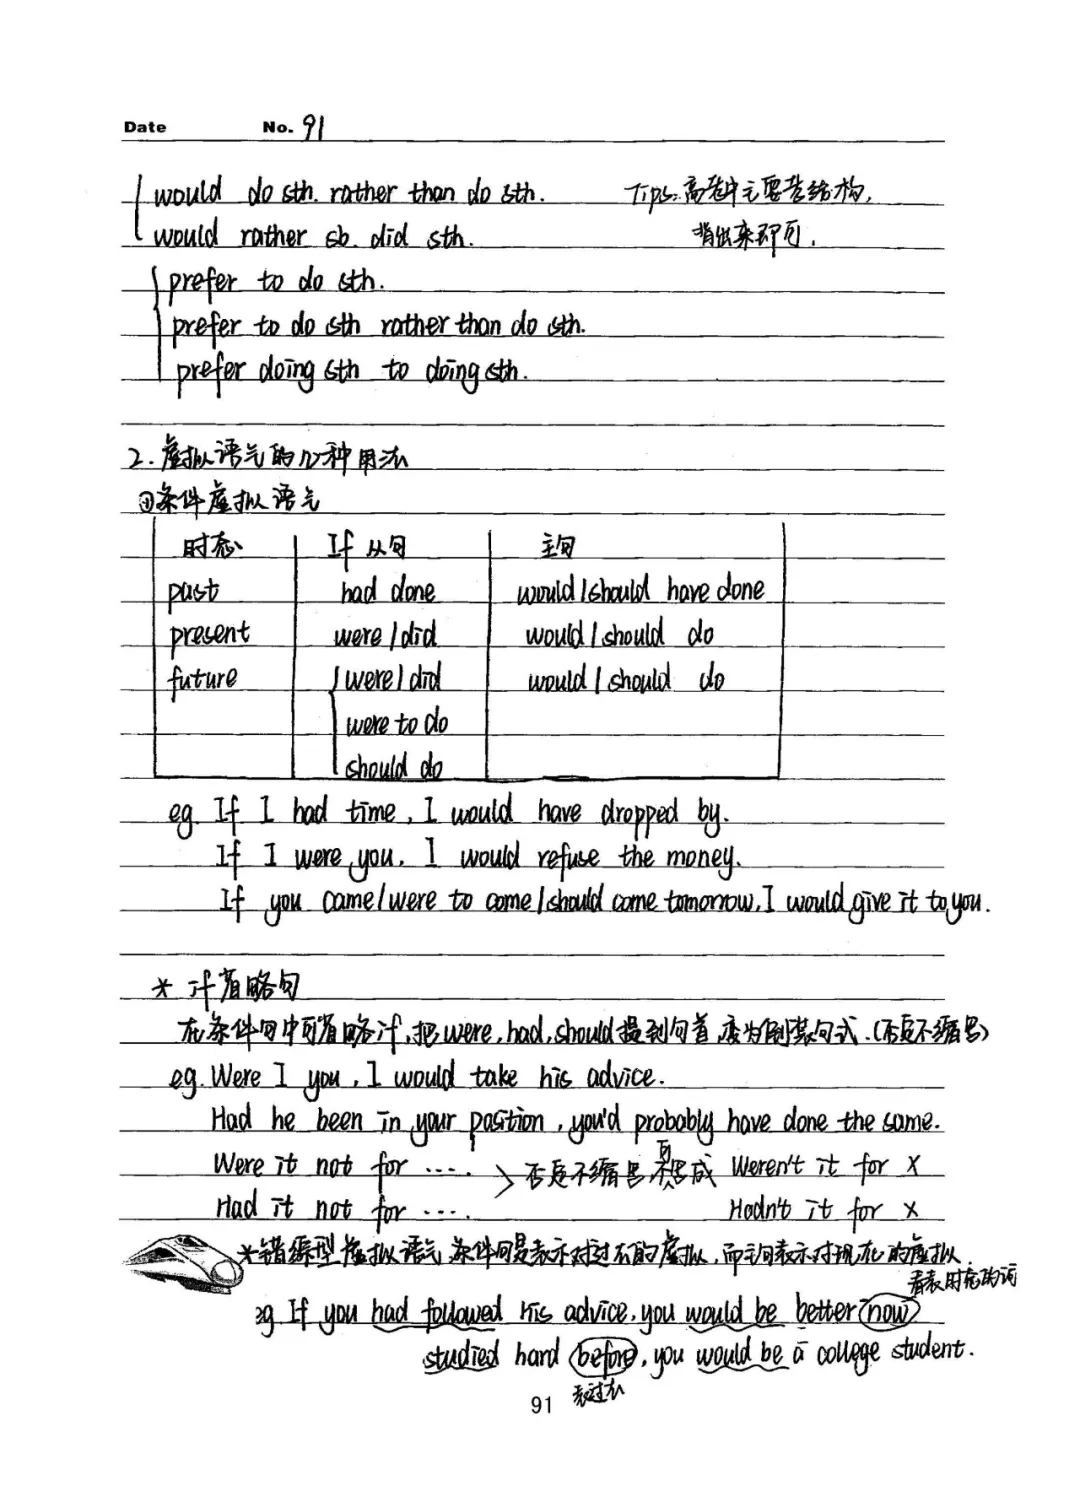 Date No. 91
would do sth. rather than do sth. Tips:高考中主要考结构,
would rather sb. did sth. 背出来即可.
prefer to do sth.
prefer to do sth rather than do sth.
prefer doing sth to doing sth.
2.虚拟语气的几种用法
①条件虚拟语气
时态 If 从句 主句
past had done would/should have done
present were/did would/should do
future were/did would/should do
were to do
should do
eg. If I had time, I would have dropped by.
If I were you, I would refuse the money.
If you came/were to come/should come tomorrow, I would give it to you.
* if省略句
在条件句中可省略if,把were,had,should提到句首,变为倒装句式.(否定不缩写)
eg. Were I you, I would take his advice.
Had he been in your position, you'd probably have done the same.
Were it not for .... 否定不缩写 不 成 Weren't it for ×
Had it not for .... Hadn't it for ×
*错综型虚拟语气 条件句是表示对过去的虚拟,而主句表示对现在的虚拟.
看表时态的词
eg If you had followed his advice, you would be better now
studied hard before, you would be a college student.
表过去
91